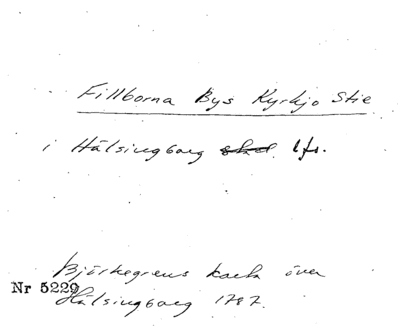 Fillborna Bys Kyrkjo Stie
i Hälsingborg lfs.
Björkegrens karta över
Nr 5229
Hälsingborg 1787.